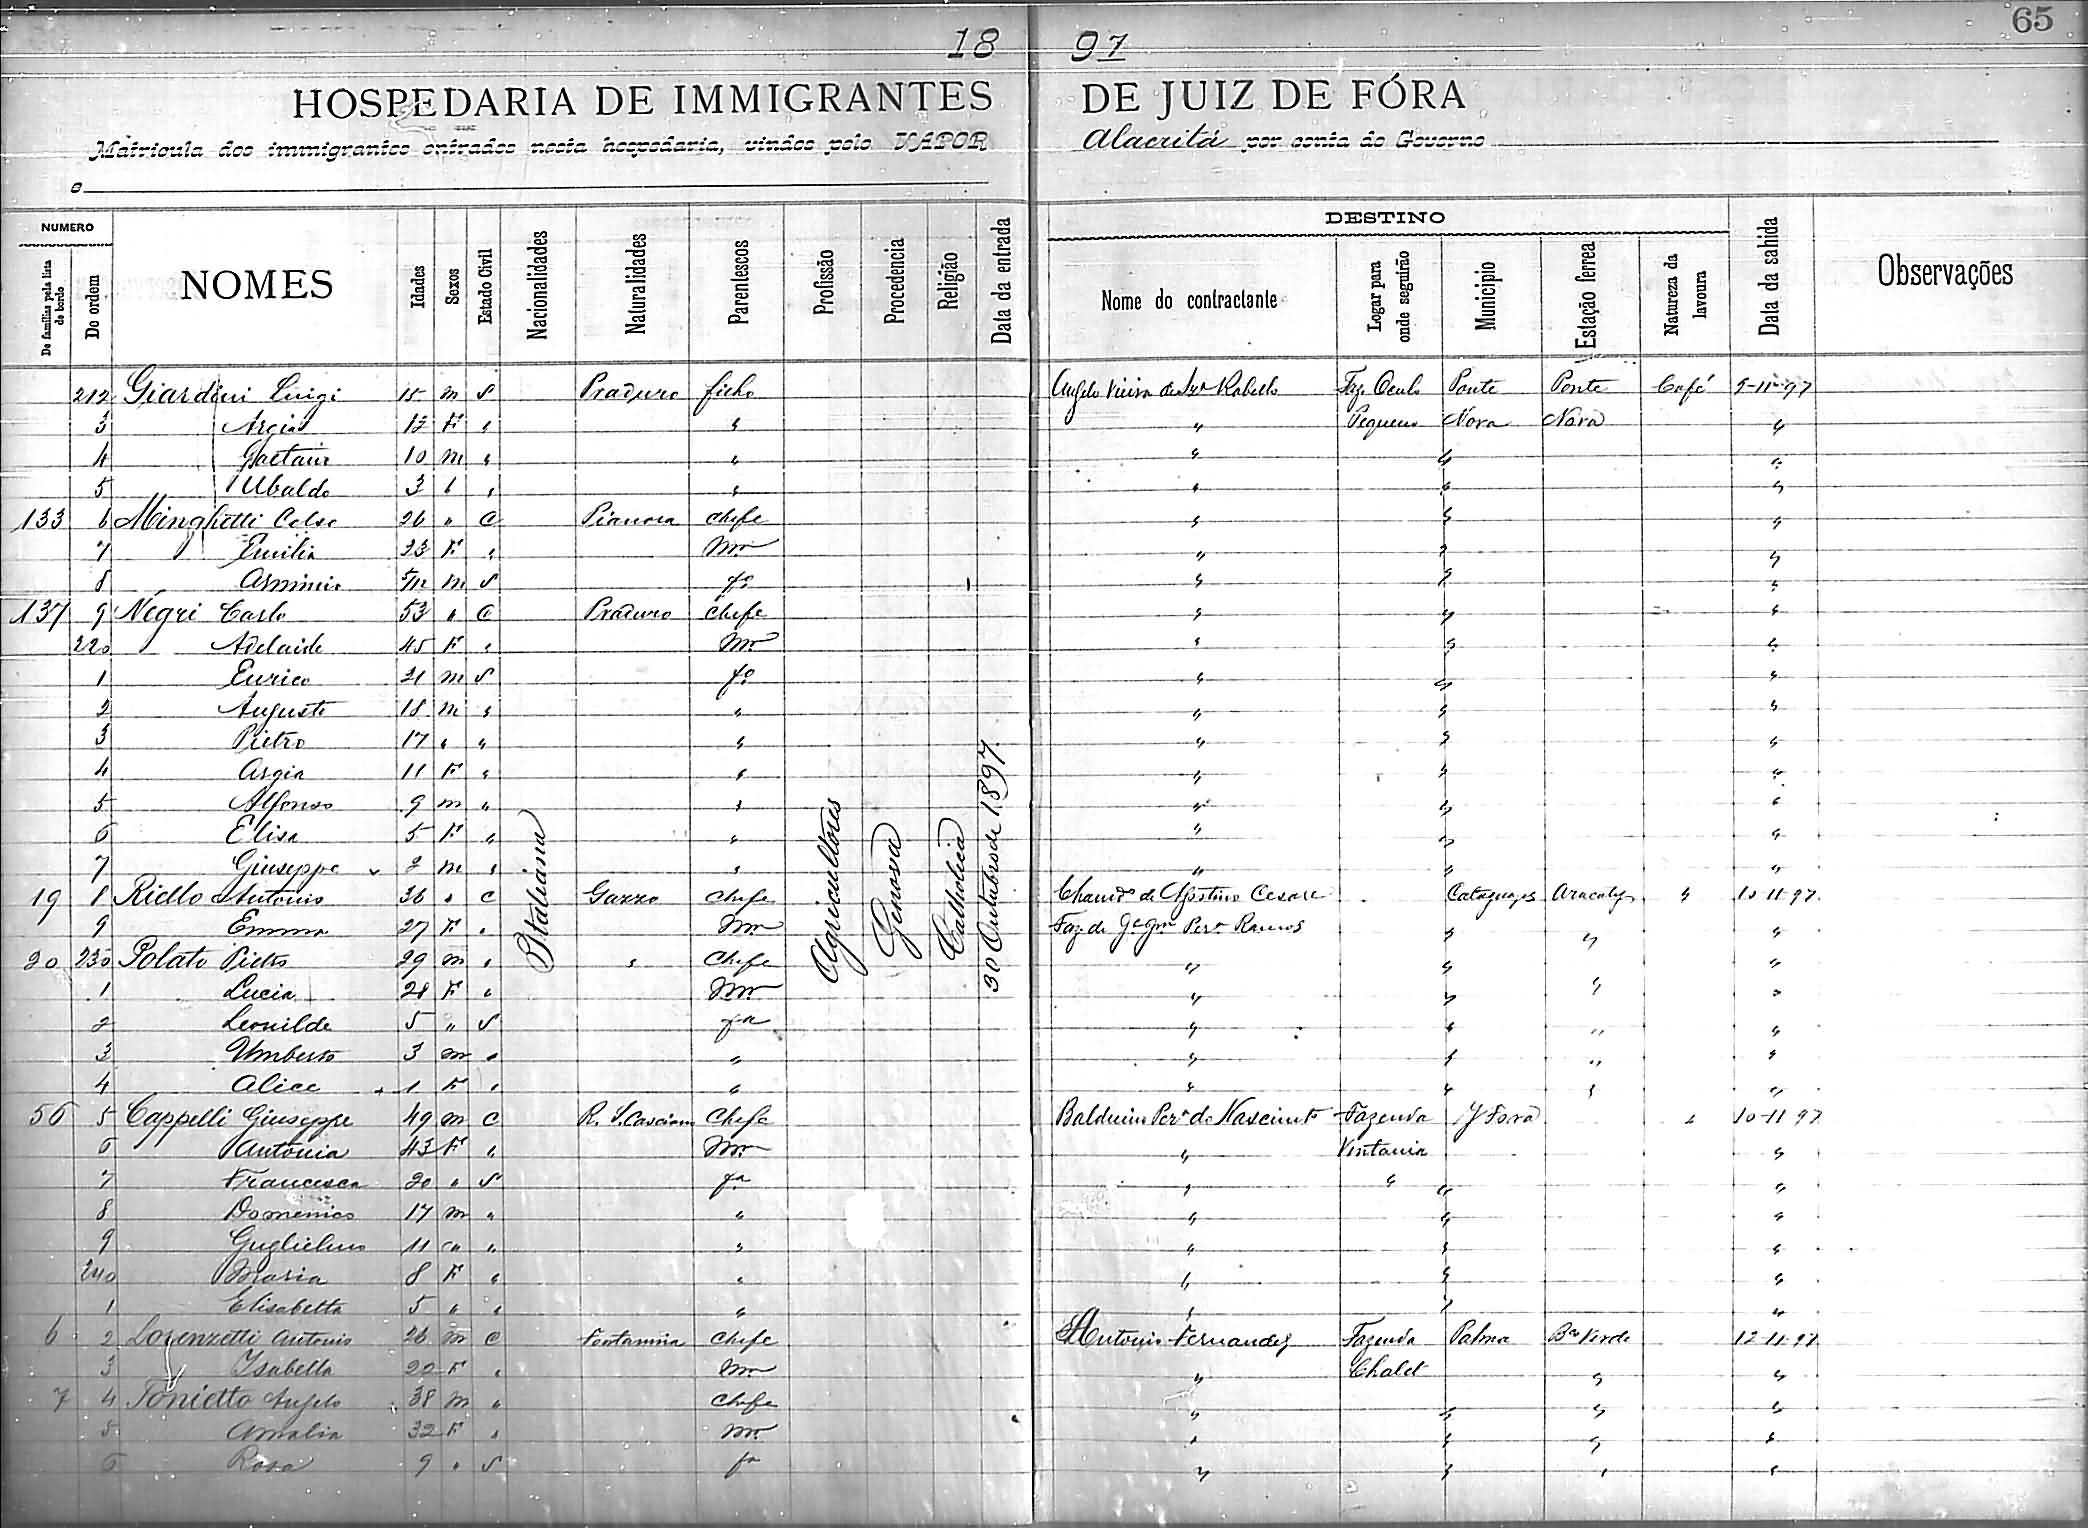 65
18 97
HOSPEDARIA DE IMMIGRANTES DE JUIZ DE FÓRA
Matricula dos immigrantes entrados nesta hospedaria, vindos pelo VAPOR Alacritá por conta do Governo
a
NUMERO DESTINO
De familias pela lista de bordo Do ordem NOMES Idades Sexos Estado Civil Nacionalidades Naturalidades Parentescos Profissão Procedencia Religião Data da entrada Nome do contractante Logar para onde seguirão Municipio Estação ferrea Natureza da lavoura Data da sahida Observações
Italiana Agricultores Genova Catholica 30 Outubro de 1897
212 Giardini Luigi 15 m S Praduro filho Angelo Vieira de Rabello Faz. Oculo Ponte Ponte Café 9-11-97
3 Argia 12 F " " " Pequeno Nova Nova "
4 Gaetano 10 m " " " " "
5 Ubaldo 3 " " " " " "
133 6 Minghetti Celso 26 " C Pianora Chefe " " "
7 Emilia 23 F " Mer " " "
8 Arminio 5/12 m S fo " " "
137 9 Negri Carlo 53 " C Praduro Chefe " " "
220 Adelaide 45 F " Mer " " "
1 Eurico 21 m S fo " " "
2 Augusto 18 m " " " " "
3 Pietro 17 " " " " " "
4 Argia 11 F " " " " "
5 Alfonso 9 m " " " " "
6 Elisa 5 F " " " " "
7 Giuseppe 2 m " " " " "
19 8 Riello Antonio 36 " C Gazzo Chefe de Agostino Cesare Cataguazes Aracaty " 10-11-97
9 Emma 27 F " Mer Faz. de Pera Ramos " " "
20 230 Polato Pietro 29 m " " Chefe " " " "
1 Lucia 28 F " Mer " " " "
2 Leonilde 5 " S fa " " " "
3 Umberto 3 m " " " " " "
4 Alice 1 F " " " " " "
56 5 Cappelli Giuseppe 49 m C R. S. Casciano Chefe Balduino Pera do Nascimto Fazenda J Fora " 10-11-97
6 Antonia 43 F " Mer " Ventania "
7 Francesca 20 " S fa " " " "
8 Domenico 17 m " " " " "
9 Guglielmo 11 " " " " " "
240 Maria 8 F " " " " "
1 Elisabetta 5 " " " " " "
6 2 Lorenzetti Antonio 26 m C Fontamina Chefe Antonio Fernandes Fazenda Palma Ba Verde 12-11-97
3 Isabella 22 F " Mer " Chalet " "
7 4 Tonietto Angelo 38 m " Chefe " " " "
5 Amalia 32 F " Mer " " " "
6 Rosa 9 " S fa " " " "